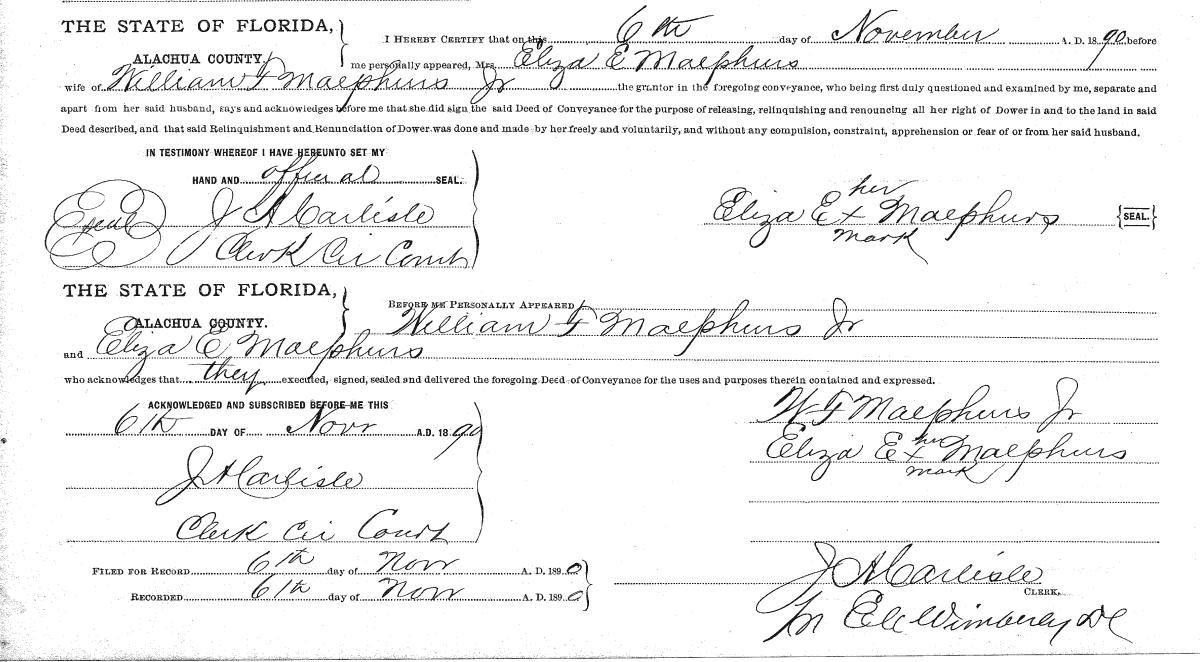 THE STATE OF FLORIDA,
ALACHUA COUNTY.
I HEREBY CERTIFY that on this 6th day of November A. D. 1890 before
me personally appeared, Mrs. Eliza E Maephurs
wife of William F Maephurs Jr the grantor in the foregoing conveyance, who being first duly questioned and examined by me, separate and
apart from her said husband, says and acknowledges before me that she did sign the said Deed of Conveyance for the purpose of releasing, relinquishing and renouncing all her right of Dower in and to the land in said
Deed described, and that said Relinquishment and Renunciation of Dower was done and made by her freely and voluntarily, and without any compulsion, constraint, apprehension or fear of or from her said husband.
IN TESTIMONY WHEREOF I HAVE HEREUNTO SET MY
HAND AND official SEAL.
Seal J A Carlisle
Clerk Cir Court
her
Eliza E x Maephurs {SEAL.}
mark
THE STATE OF FLORIDA,
ALACHUA COUNTY.
BEFORE ME PERSONALLY APPEARED
William F Maephurs Jr
and Eliza E Maephurs
who acknowledges that they executed, signed, sealed and delivered the foregoing Deed of Conveyance for the uses and purposes therein contained and expressed.
ACKNOWLEDGED AND SUBSCRIBED BEFORE ME THIS
6th DAY OF Novr A.D. 1890
J A Carlisle
Clerk Cir Court
W F Maephurs Jr
her
Eliza E x Maephurs
mark
FILED FOR RECORD 6th day of Novr A. D. 1890
RECORDED 6th day of Novr A. D. 1890
J A Carlisle
CLERK.
Wimberly DC